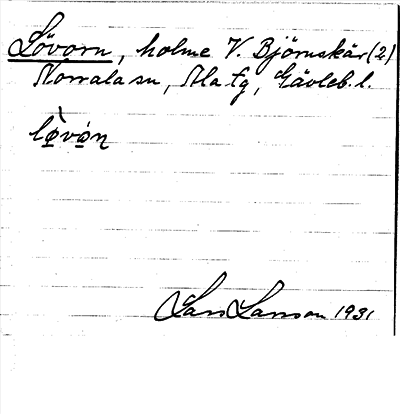 Lövorn, holme V. Björnskär (2)
Norrala sn, Ala tg, Gävleb. l.
lø̱̀vǿ̱n̨
Lars Larsson 1931